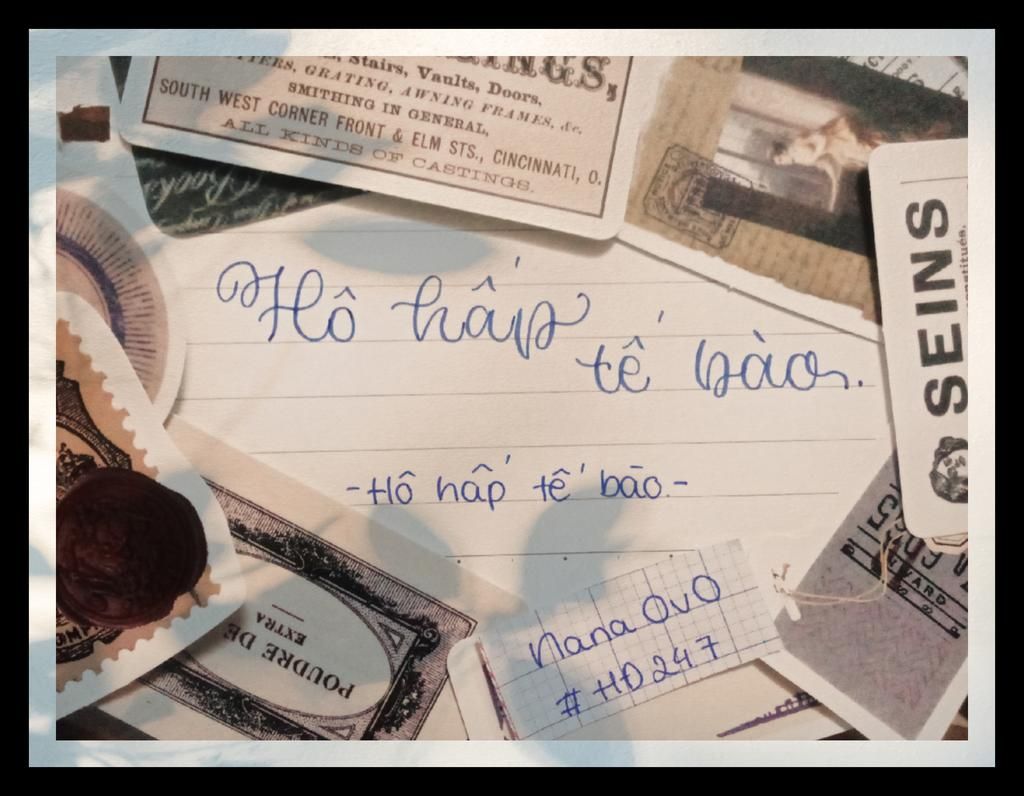 Stairs, Vaults, Doors,
GRATING, AWNING FRAMES, &c.
SMITHING IN GENERAL,
SOUTH WEST CORNER FRONT & ELM STS., CINCINNATI, O.
ALL KINDS OF CASTINGS.
SEINS
Hô hấp
tế bào.
-Hô hấp tế bào.-
POUDRE DE
EXTRA
Nana OvO
#HD247